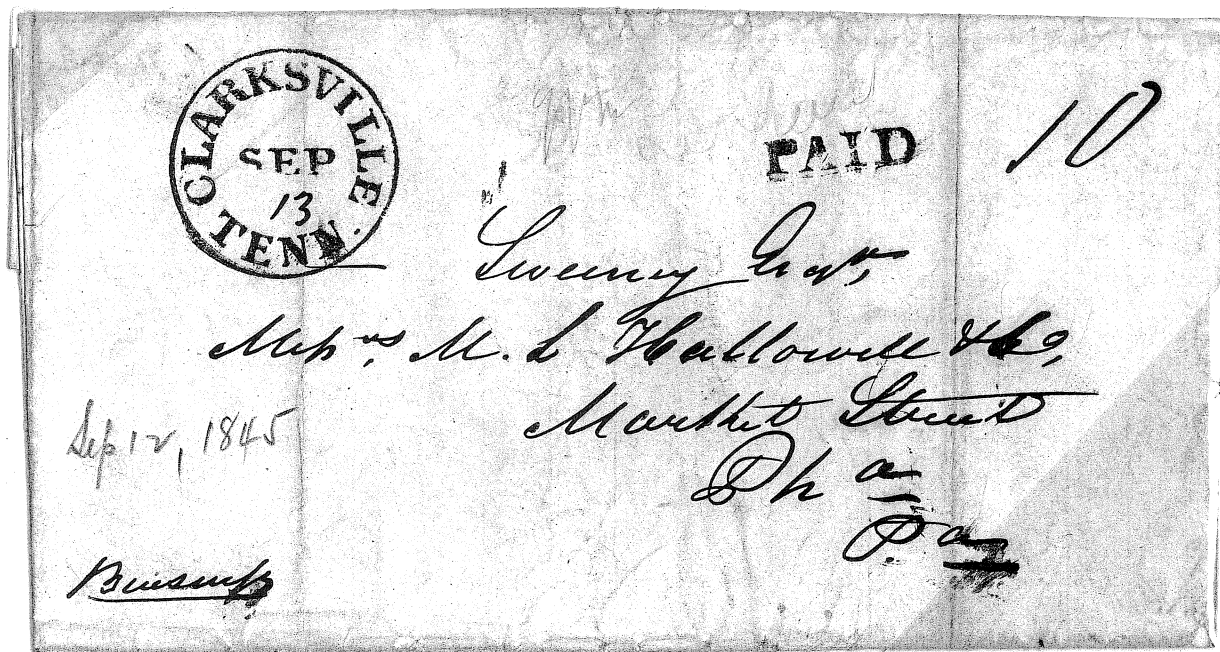 CLARKSVILLE
SEP
13
TENN.
PAID 10
Sweeney Esqr,
Messrs, M. L Hallowell & Co,
Markket Street
Pha
Pa
Sep 12, 1845